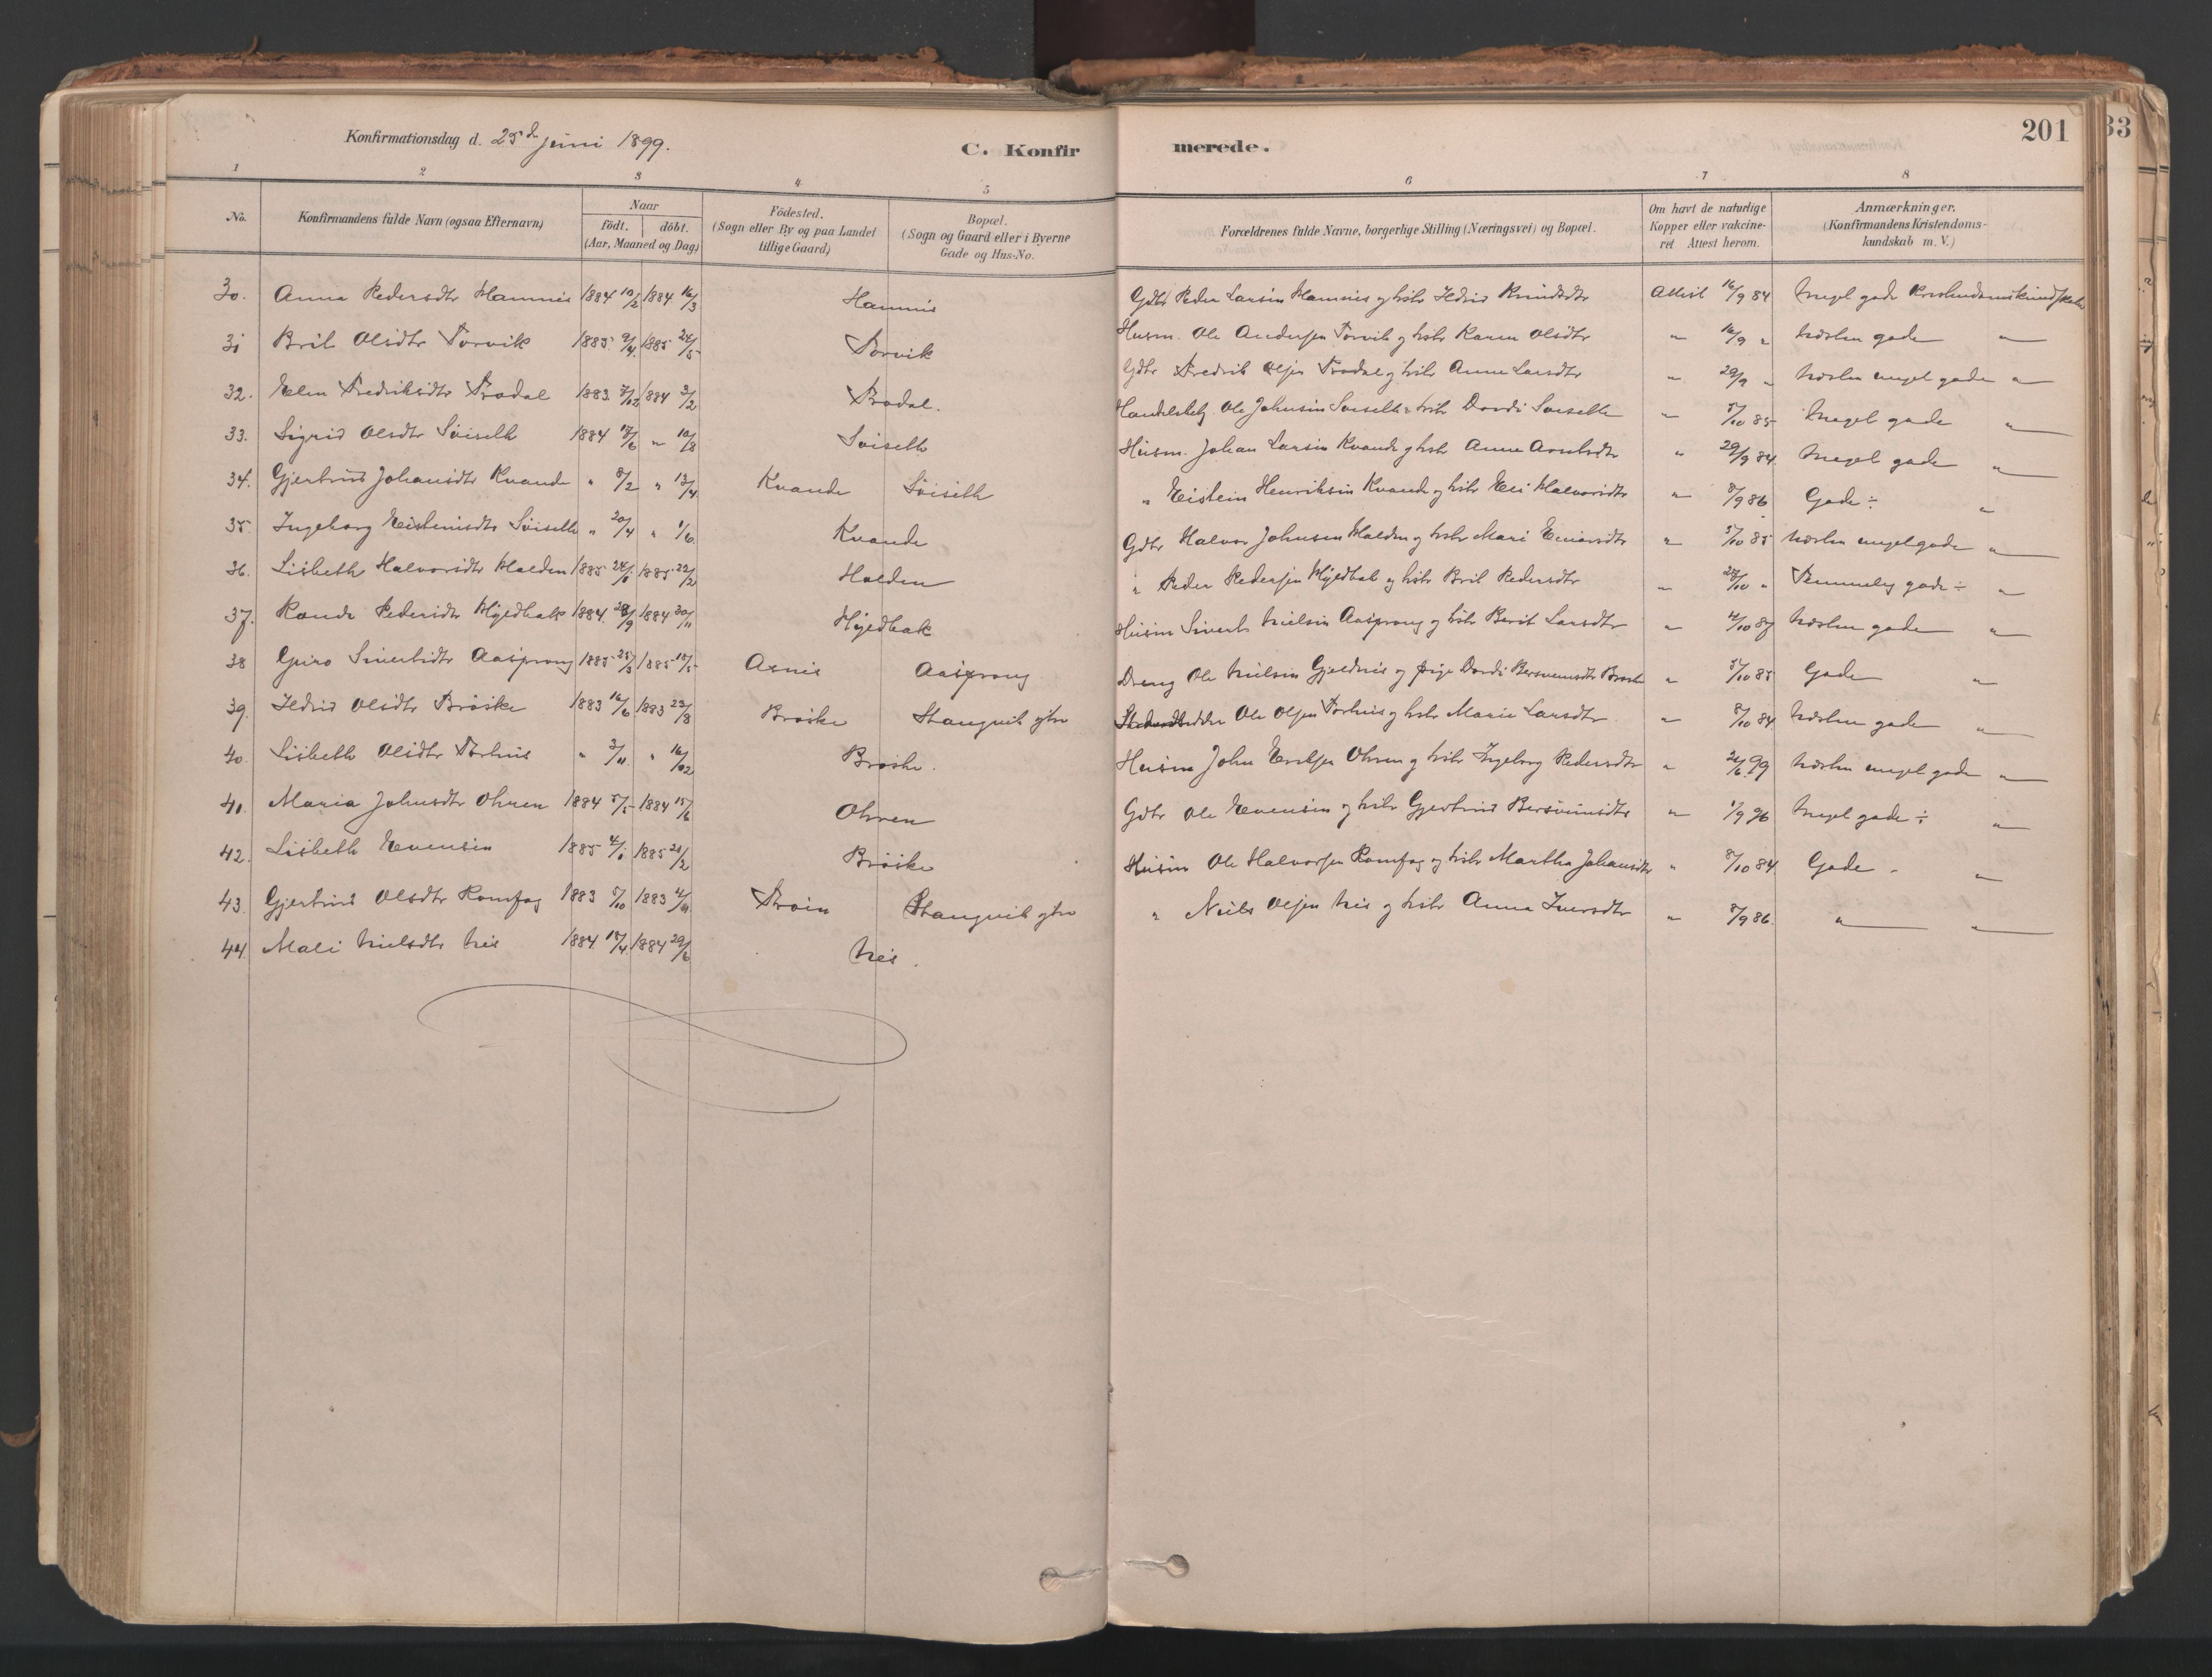 Konfirmationsdag d. 25de juni 1899.
C. Konfirmerede.
201
33
1 2 3 4 5 6 7 8
No. Konfirmandens fulde Navn (ogsaa Efternavn) Naar födt. döbt. (Aar, Maaned og Dag) Födested. (Sogn eller By og paa Landet tillige Gaard) Bopæl. (Sogn og Gaard eller i Byerne Gade og Hus-No. Forældrenes fulde Navne, borgerlige Stilling (Næringsvei) og Bopæl. Om havt de naturlige Kopper eller vakcineret Attest herom. Anmærkninger. (Konfirmandens Kristendomskundskab m. V.)
30. Anna Pedersdtr Hamnes 1884 10/2 1884 16/3 Hamnes Gdbr Peder Larsen Hamnes og hstr Ildrid Knudsdtr Attest 16/9 84 Meget gode Kristendomskundskab
31 Brit Olsdtr Torvik 1885 9/4 1885 24/5 Torvik Husm. Ole Andersen Torvik og hstr Karen Olsdtr " 16/9 " Næsten gode "
32. Elen Fredriksdtr Trodal 1883 7/12 1884 3/2 Trodal. Gdbr Fredrik Olsen Trodal og hstr Anne Larsdtr " 29/9 " Næsten meget gode "
33. Sigrid Olsdtr Söiseth 1884 18/6 " 10/8 Söiseth Handelsbetj. Ole Johnsen Söiseth & hstr Dordi Söiseth " 5/10 85 Meget gode "
34. Gjertrud Johansdtr Kvande " 8/2 " 13/4 Kvande Söiseth Husm. Johan Larsen Kvande og hstr Anne Arntsdtr " 29/9 84 Meget gode "
35 Ingeborg Eisteinsdtr Söiseth " 20/4 " 1/6 Kvande " Eistein Henriksen Kvande og hstr Eli Halvorsdtr " 8/9 86 Gode ÷ "
36. Lisbeth Halvorsdtr Halden 1885 24/1 1885 22/2 Halden Gdbr Halvor Johnsen Halden og hstr Mari Einarsdtr " 5/10 85 Næsten meget gode "
37. Rande Pedersdtr Hjeldbak 1884 28/9 1884 30/11 Hjeldbak " Peder Pedersen Hjeldbak og hstr Brit Pedersdtr " 28/10 " Temmelig gode ÷ "
38 Guro Sivertsdtr Aasprong 1885 25/3 1885 10/5 Asnes Aasprong Husm Sivert Nielsen Aasprong og hstr Berit Larsdtr " 4/10 87 Næsten gode "
39. Ildrid Olsdtr Bröske 1883 16/6 1883 23/8 Bröske Stangvik gtn Dreng Ole Nielsen Gjeldnes og pige Dordi Bersvendsdtr Bröske " 5/10 85 Gode "
40. Lisbeth Olsdtr Torhus " 3/11 " 16/12 Bröske. Ole Olsen Torhus og hstr Marie Larsdtr " 8/10 84. Næsten gode "
41. Maria Johnsdtr Ohren 1884 5/5 1884 15/6 Ohren Husm John Eriksen Ohren og hstr Ingeborg Pedersdtr " 24/6 99 Næsten meget gode "
42. Lisbeth Evensen 1885 4/1 1885 21/2 Bröske Gdbr Ole Evensen og hstr Gjertrud Bersvendsdtr " 1/9 96 Meget gode ÷ "
43. Gjertrud Olsdtr Romfog 1883 5/10 1883 4/11 Tröen Stangvik gtn Husm Ole Halvorsen Romfog og hstr Martha Johansdtr " 8/10 84 Gode "
44. Mali Nielsdtr Nes 1884 18/4 1884 29/6 Nes. " Niels Olsen Nes og hstr Anne Iversdtr " 8/9 86. " "